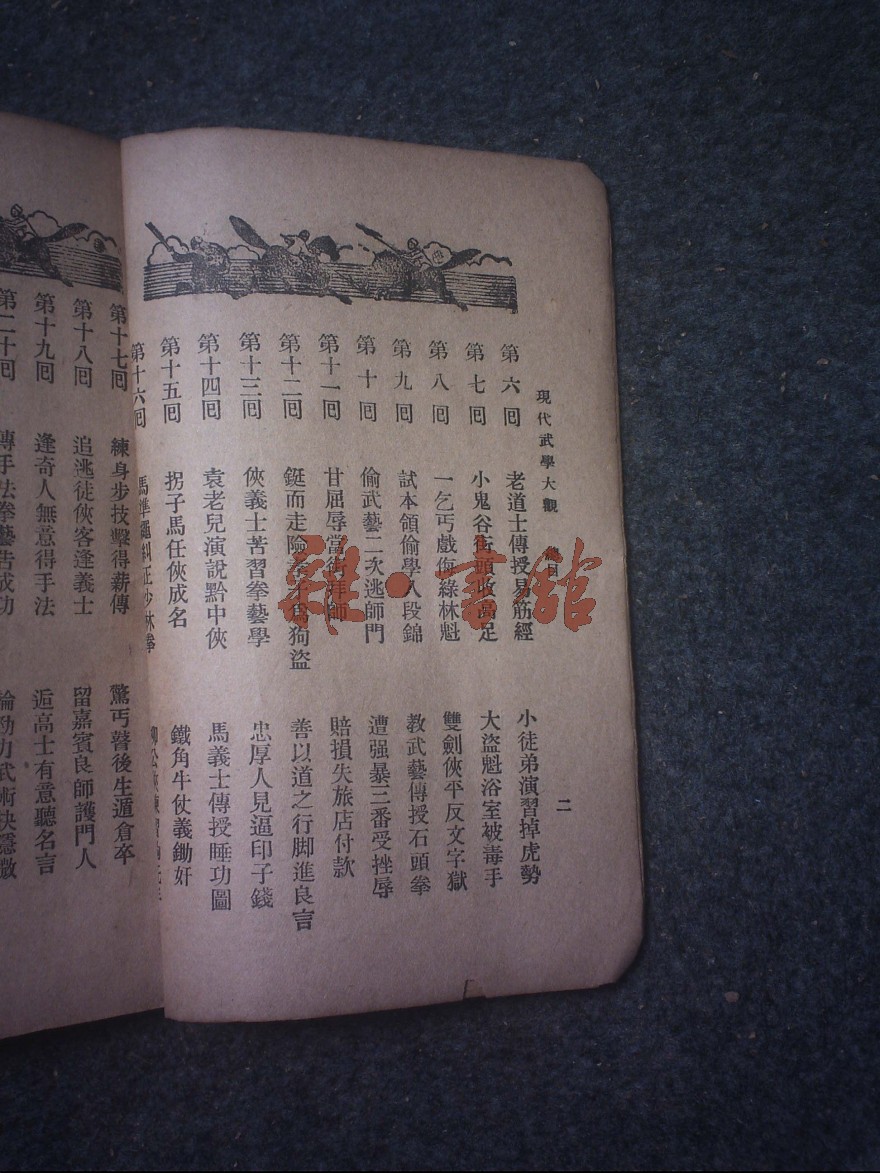 現代武學大觀 總目 二
第六囘 老道士傳授易筋經 小徒弟演習掉虎勢
第七囘 小鬼谷街頭收高足 大盜魁浴室被毒手
第八囘 一乞丐戲侮綠林魁 雙劍俠平反文字獄
第九囘 試本領偷學八段錦 教武藝傳授石頭拳
第十囘 偷武藝二次逃師門 遭强暴三番受挫辱
第十一囘 甘屈辱當街拜師 賠損失旅店付款
第十二囘 鋌而走險孝子爲狗盜 善以道之行脚進良言
第十三囘 俠義士苦習拳藝學 忠厚人見逼印子錢
第十四囘 袁老兒演說黔中俠 馬義士傳授睡功圖
第十五囘 拐子馬任俠成名 鐵角牛仗義鋤奸
第十六囘 馬準繩糾正少林拳
第十七囘 練身步技擊得薪傳 驚丐瞽後生遁倉卒
第十八囘 追逃徒俠客逢義士 留嘉賓良師護門人
第十九囘 逢奇人無意得手法 逅高士有意聽名言
第二十囘 傳手法拳藝告成功 論勁力武術決隱微
雜·書館